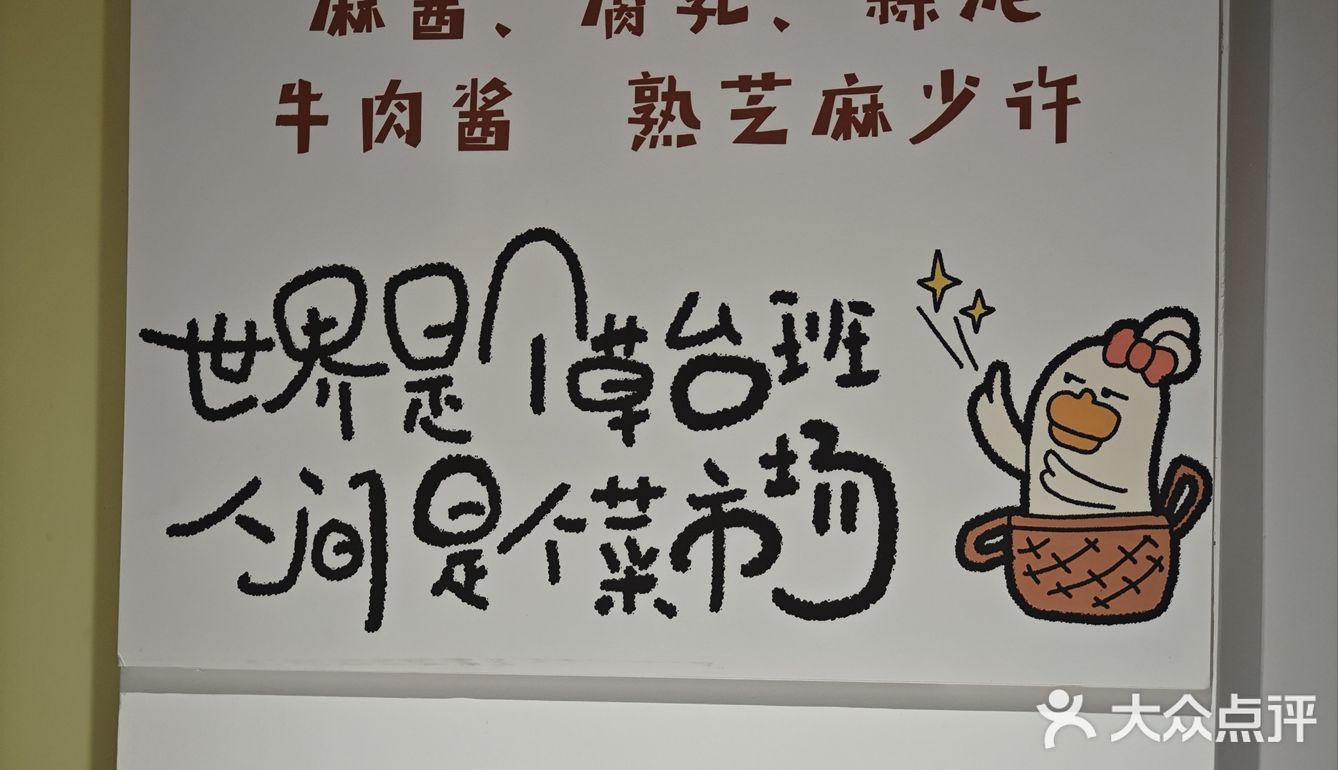 麻酱、腐乳、蒜泥
牛肉酱 熟芝麻少许
世界是个草台班
人间是个菜市场
大众点评